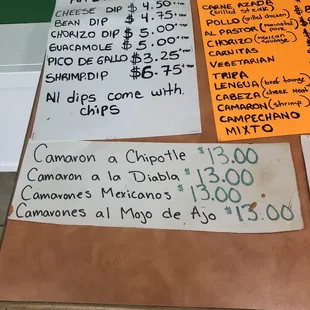 CHEESE DIP $4.50+tax
BEAN DIP $4.75+tax
CHORIZO DIP $5.00+tax
GUACAMOLE $5.00+tax
PICO DE GALLO $3.25+tax
SHRIMP DIP $6.75+tax
All dips come with
chips
CARNE AZADA
(Grilled steak)
POLLO (grilled chicken)
AL PASTOR (marinated pork)
CHORIZO (mexican sausage)
CARNITAS
VEGETARIAN
TRIPA
LENGUA (beef tounge)
CABEZA (cheek meat)
CAMARON (shrimp)
CAMPECHANO
MIXTO
Camaron a Chipotle $13.00
Camaron a la Diabla $13.00
Camarones Mexicanos $13.00
Camarones al Mojo de Ajo $13.00